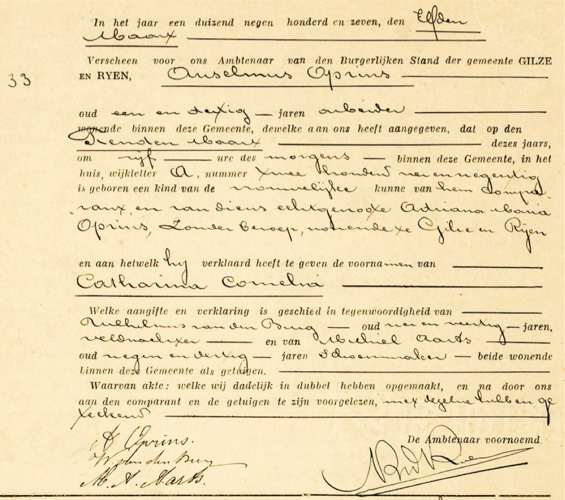 In het jaar een duizend negen honderd en zeven, den Elfden
Maart
Verscheen voor ons Ambtenaar van den Burgerlijken Stand der gemeente GILZE
33
EN RYEN, Anselmus Oprins
oud een en dertig jaren arbeider
wonende binnen deze Gemeente, dewelke aan ons heeft aangegeven, dat op den
Tienden Maart dezes jaars,
om vijf ure des morgens binnen deze Gemeente, in het
huis, wijkletter A, nummer twee honderd en negentig
is geboren een kind van de vrouwelijke kunne van hem compa
rant, en van diens echtgenoote Adriana Maria
Oprins, zonder beroep, wonende te Gilze en Rijen
en aan hetwelk hij verklaard heeft te geven de voornamen van
Catharina Cornelia
Welke aangifte en verklaring is geschied in tegenwoordigheid van
Wilhelmus van den Burg oud en veertig jaren,
veldwachter en van Michiel Aarts
oud negen en dertig jaren Schoenmaker beide wonende
binnen deze Gemeente als getuigen.
Waarvan akte: welke wij dadelijk in dubbel hebben opgemaakt, en na door ons
aan den comparant en de getuigen te zijn voorgelezen, met dezelve hebben ge
teekend
A Oprins. De Ambtenaar voornoemd
W van den Burg
M. A. Aarts.